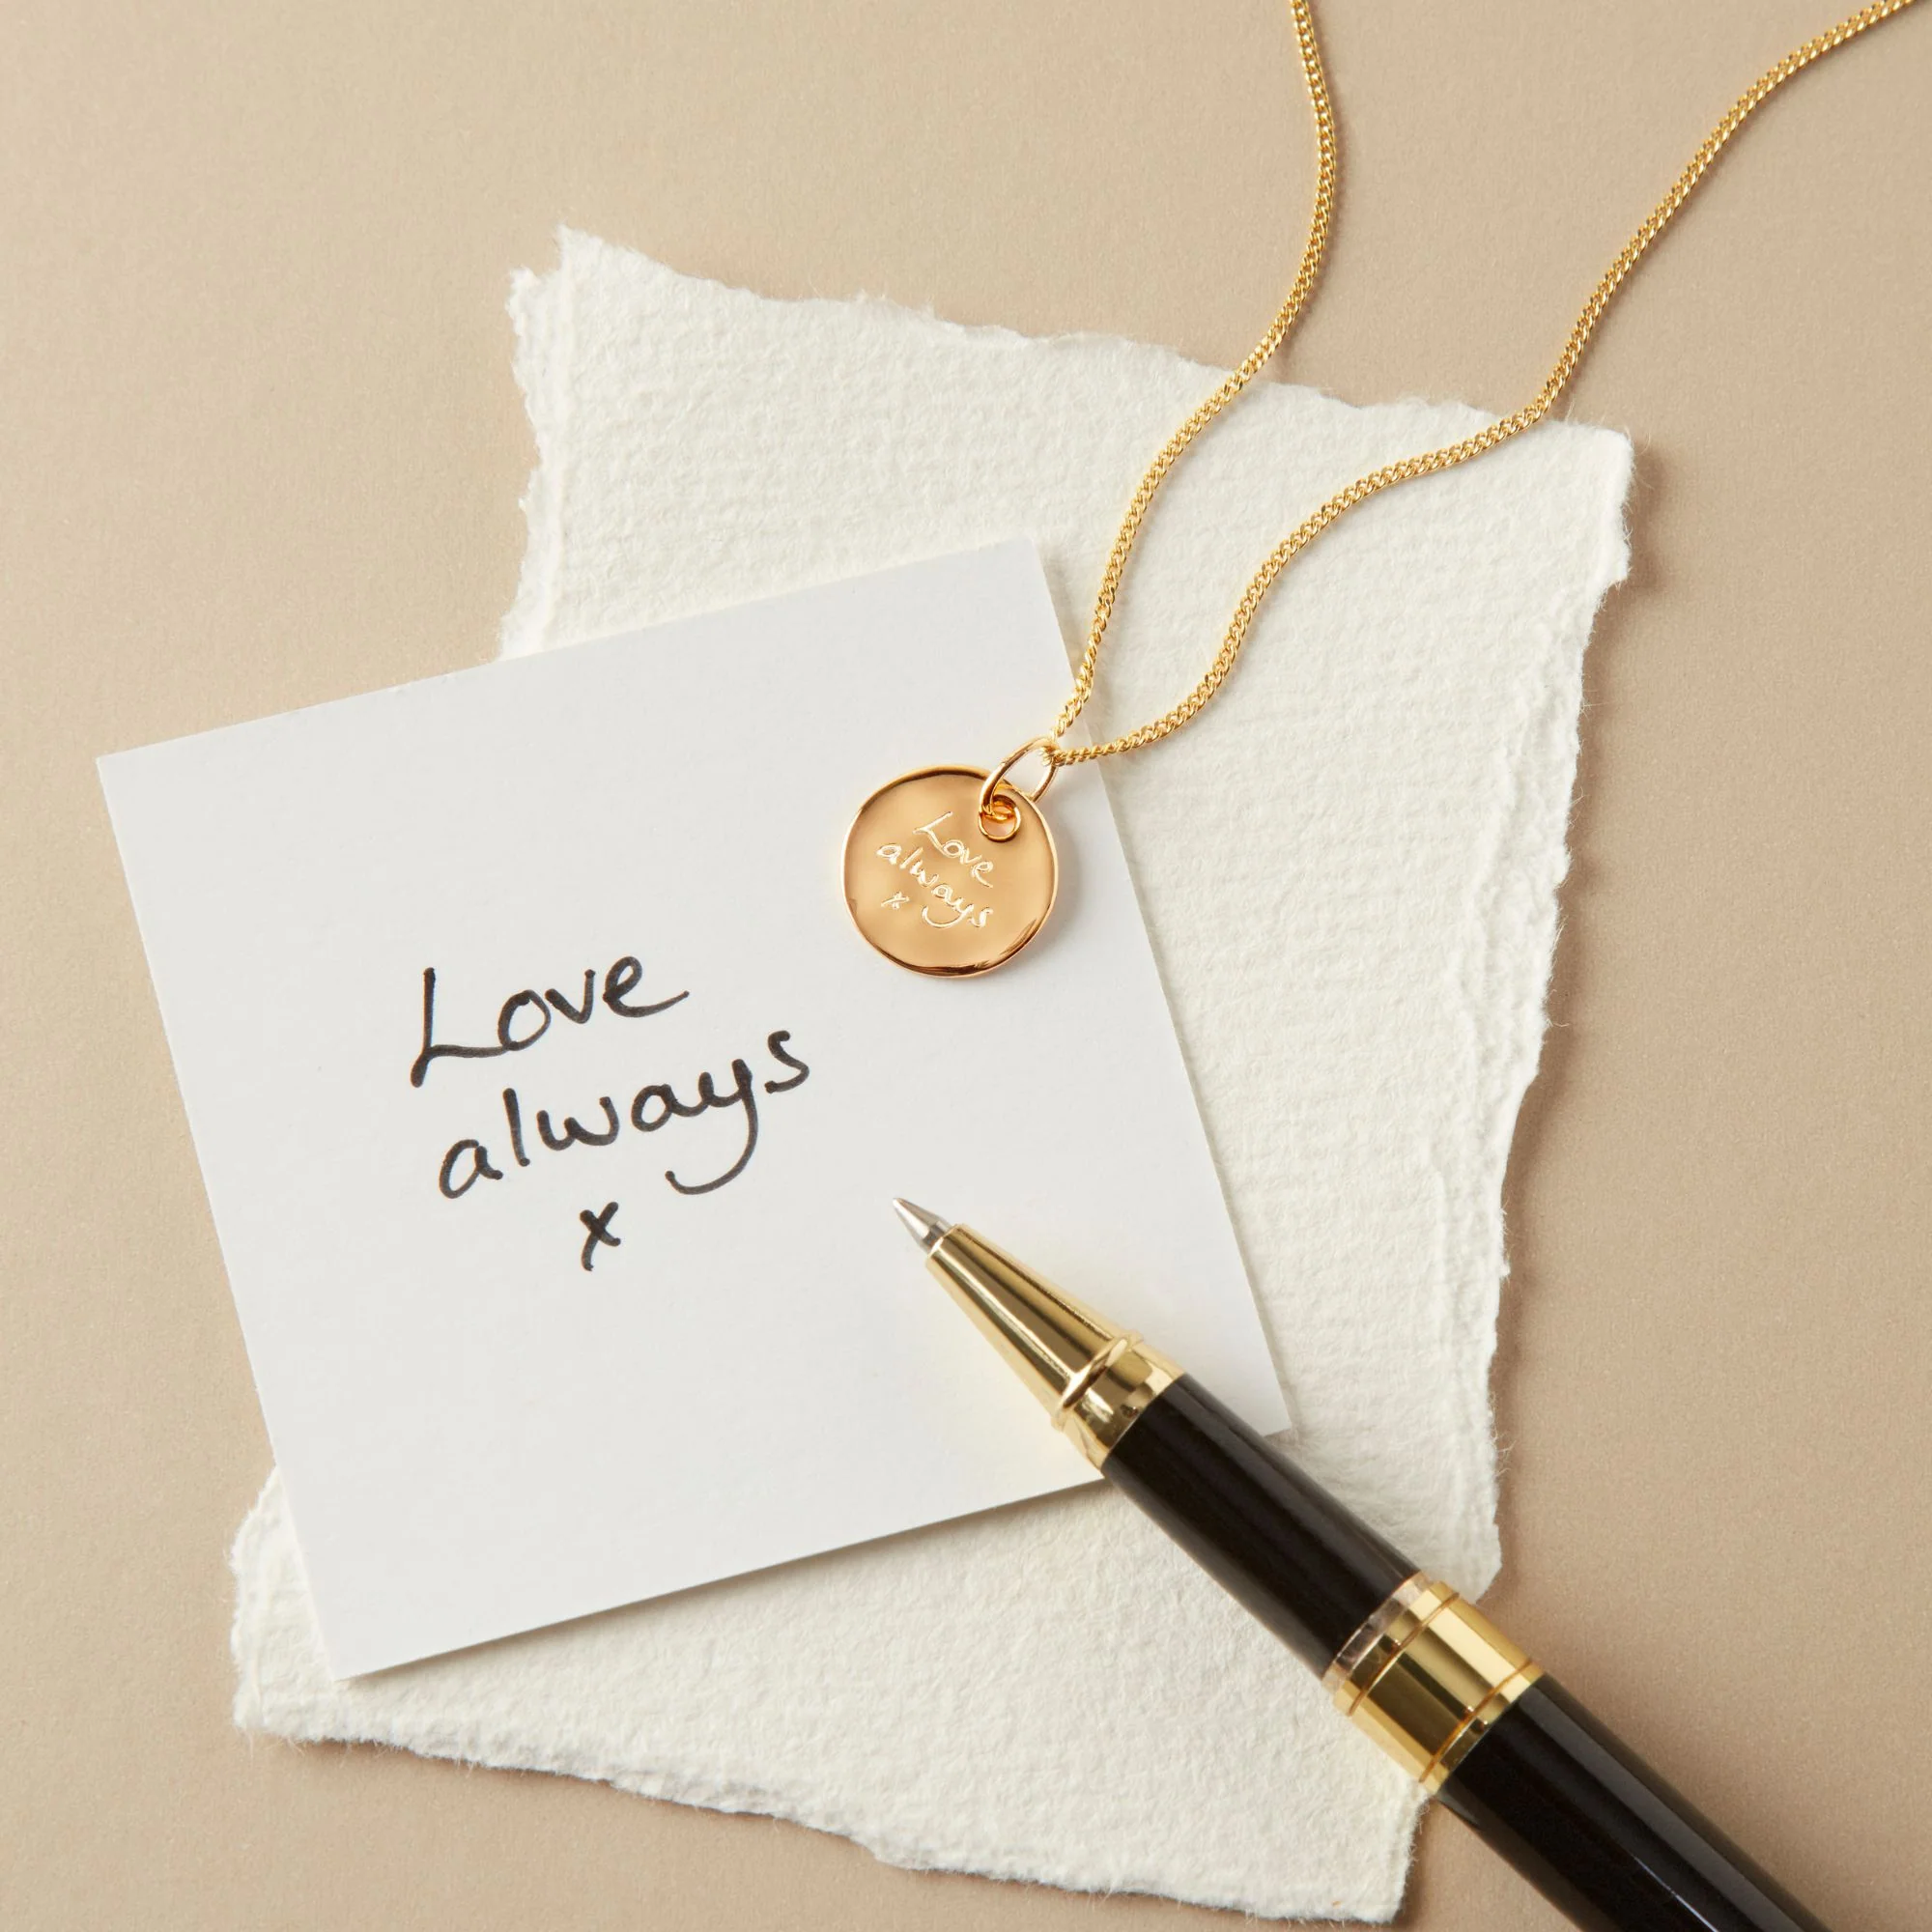 Love
always
x
Love
always
x